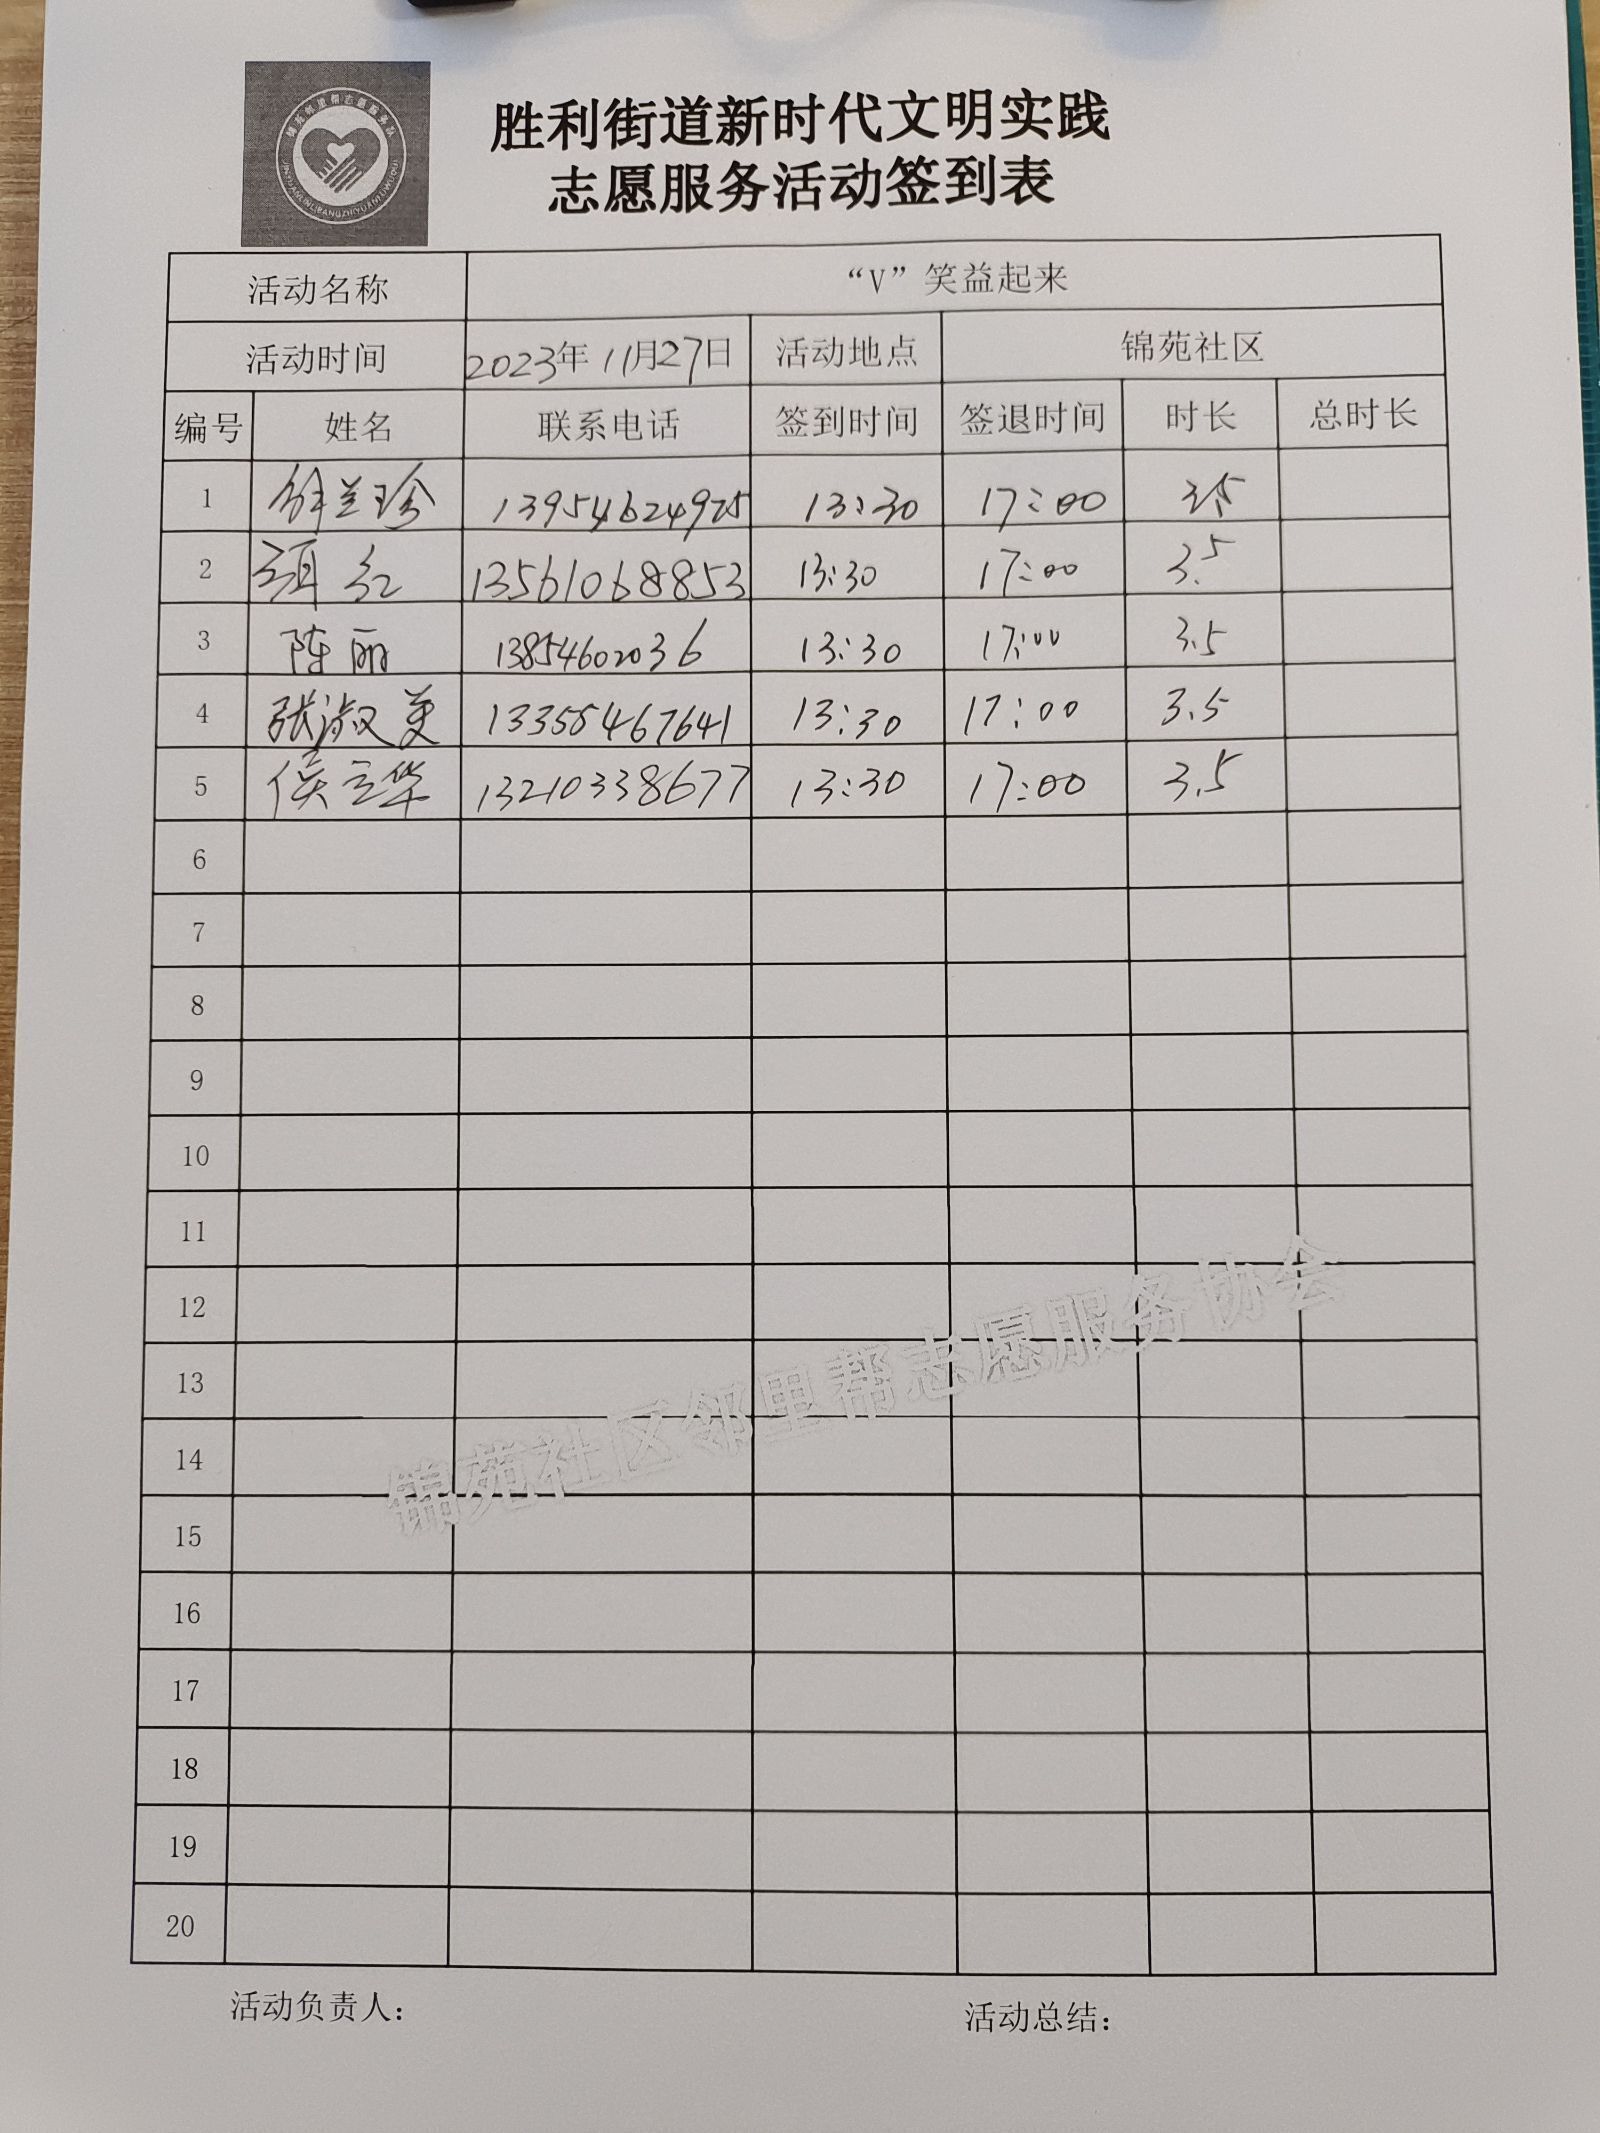 锦苑邻里帮志愿服务队
胜利街道新时代文明实践
志愿服务活动签到表
活动名称 “V”笑益起来
活动时间 2023年11月27日 活动地点 锦苑社区
编号 姓名 联系电话 签到时间 签退时间 时长 总时长
1 徐兰珍 13954624925 13:30 17:00 3.5
2 红 13561068853 13:30 17:00 3.5
3 陈丽 13854602036 13:30 17:00 3.5
4 张淑英 13358467641 13:30 17:00 3.5
5 侯立华 13210338677 13:30 17:00 3.5
6
7
8
9
10
11
12
13
14
15
16
17
18
19
20
锦苑社区邻里帮志愿服务协会
活动负责人： 活动总结：